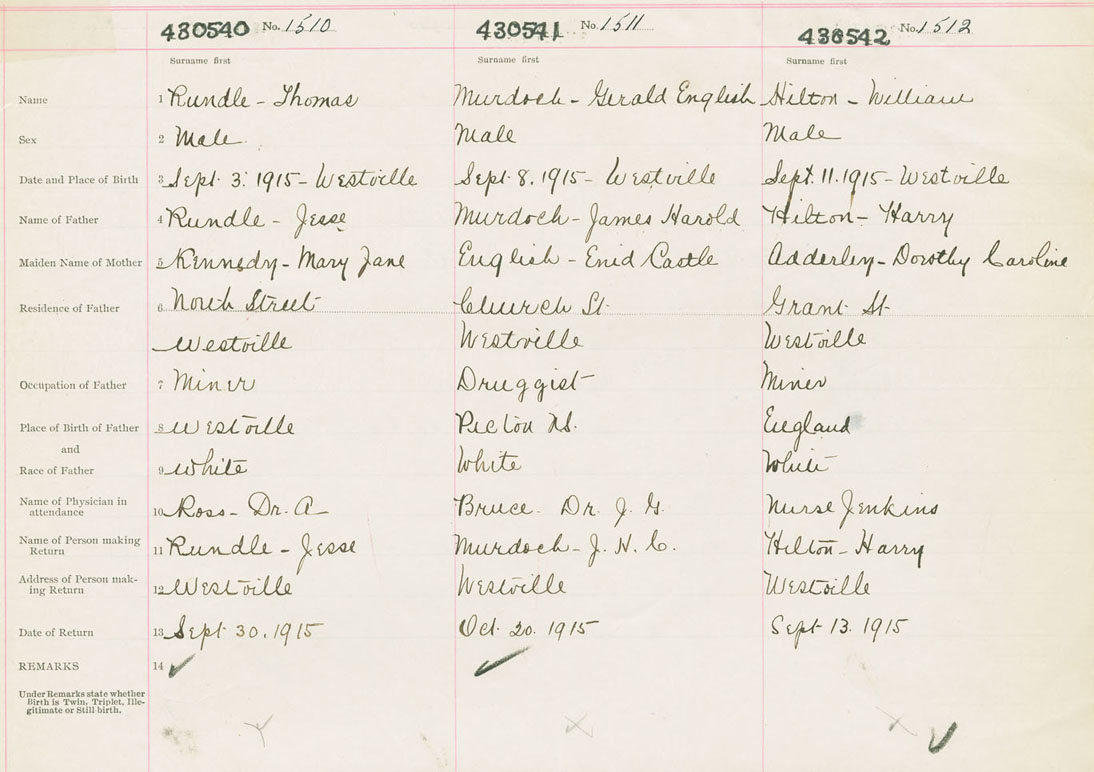 430540 No. 1510 430541 No. 1511 430542 No. 1512
Surname first Surname first Surname first
Name 1 Rundle - Thomas Murdoch - Gerald English Hilton - William
Sex 2 Male Male Male
Date and Place of Birth 3 Sept. 3. 1915 - Westville Sept. 8. 1915 - Westville Sept. 11. 1915 - Westville
Name of Father 4 Rundle - Jesse Murdoch - James Harold Hilton - Harry
Maiden Name of Mother 5 Kennedy - Mary Jane English - Enid Castle Adderley - Dorothy Caroline
Residence of Father 6 North Street Church St. Grant St.
Westville Westville Westville
Occupation of Father 7 Miner Druggist Miner
Place of Birth of Father 8 Westville Pictou N.S. England
and
Race of Father 9 White White White
Name of Physician in
attendance 10 Ross - Dr. A Bruce. Dr. J. G. Nurse Jenkins
Name of Person making
Return 11 Rundle - Jesse Murdoch - J. H. C. Hilton - Harry
Address of Person mak-
ing Return 12 Westville Westville Westville
Date of Return 13 Sept 30. 1915 Oct. 20. 1915 Sept 13. 1915
REMARKS 14
Under Remarks state whether
Birth is Twin, Triplet, Ille-
gitimate or Still-birth.